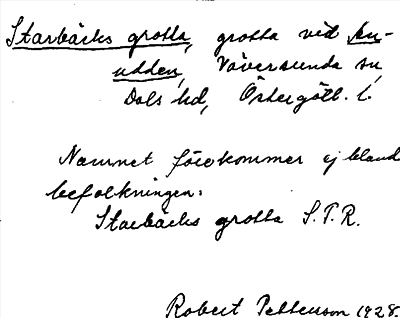 Starbäcks grotta, grotta vid
udden, Väversunda sn,
Dals hd, Östergötl. l.
Namnet förekommer ej bland
befolkningen:
Starbäcks grotta S.T.R.
Robert Pettersson 1928.